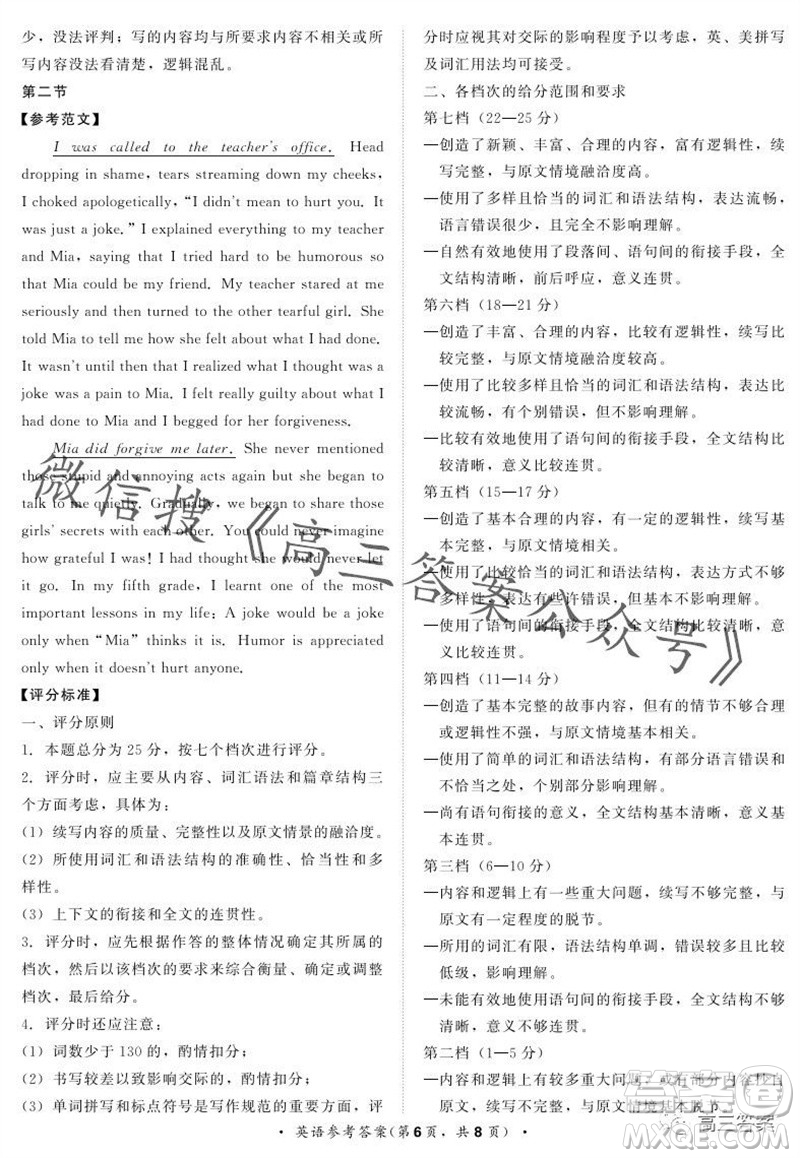 少，没法评判；写的内容均与所要求内容无关或所
写内容没法看清楚，逻辑混乱。
第二节
【参考范文】
I was called to the teacher's office. Head
dropping in shame, tears streaming down my cheeks,
I choked apologetically, “I didn't mean to hurt you. It
was just a joke.” I explained everything to my teacher
and Mia, saying that I tried hard to be humorous so
that Mia could be my friend. My teacher stared at me
seriously and then turned to the other tearful girl. She
told Mia to tell me how she felt about what I had done.
It wasn't until then that I realized what I thought was a
joke was a pain to Mia. I felt really guilty about what I
had done to Mia and I begged for her forgiveness.
Mia did forgive me later. She never mentioned
those stupid and annoying acts again but she began to
talk to me quietly. Gradually, we began to share those
girls' secrets with each other. You could never imagine
how grateful I was! I had thought she would never let
it go. In my fifth grade, I learnt one of the most
important lessons in my life: A joke would be a joke
only when “Mia” thinks it is. Humor is appreciated
only when it doesn't hurt anyone.
【评分标准】
一、评分原则
1. 本题总分为 25 分，按七个档次进行评分。
2. 评分时，应主要从内容、词汇语法和篇章结构三
个方面考虑，具体为：
(1) 续写内容的质量、完整性以及原文情景的融洽度。
(2) 所使用词汇和语法结构的准确性、恰当性和多
样性。
(3) 上下文的衔接和全文的连贯性。
3. 评分时，应先根据作答的整体情况确定其所属的
档次，然后以该档次的要求来综合衡量、确定档
次，最后给分。
4. 评分时还应注意：
(1) 词数少于 130 的，酌情扣分；
(2) 书写较差以致影响交际的，酌情扣分；
(3) 单词拼写和标点符号是写作规范的重要方面，评
分时应视其对交际的影响程度予以考虑，英、美拼写
及词汇用法均可接受。
二、各档次的给分范围和要求
第七档（22—25 分）
—创造了新颖、丰富、合理的内容，富有逻辑性，续
写完整，与原文情境融洽度高。
—使用了多样且恰当的词汇和语法结构，表达流畅，
语言错误很少，且完全不影响理解。
—自然有效地使用了段落间、语句间的衔接手段，全文
结构清晰，前后呼应，意义连贯。
第六档（18—21 分）
—创造了丰富、合理的内容，比较有逻辑性，续写
比较完整，与原文情境融洽度较高。
—使用了比较多样且恰当的词汇和语法结构，表达
比较流畅，有个别错误，但不影响理解。
—比较有效地使用了语句间的衔接手段，全文结构
比较清晰，意义比较连贯。
第五档（15—17 分）
—创造了基本合理的内容，有一定的逻辑性，续写
基本完整，与原文情境相关。
—使用了比较恰当的词汇和语法结构，表达方式不
够多样性，表达有些许错误，但基本不影响理解。
—使用了语句间的衔接手段，全文结构比较清晰，意
义比较连贯。
第四档（11—14 分）
—创造了基本完整的故事内容，但有的情节不够合理
或逻辑性不强，与原文情境基本相关。
—使用了简单的词汇和语法结构，有部分语言错误和
不恰当之处，个别部分影响理解。
—尚有语句衔接的意义，全文结构基本清晰，意义
基本连贯。
第三档（6—10 分）
—内容和逻辑上有一些重大问题，续写不够完整，与
原文有一定程度的脱节。
—所用的词汇有限，语法结构单调，错误较多且比较
低级，影响理解。
—未能有效地使用语句间的衔接手段，全文结构不够
清晰，意义不够连贯。
第二档（1—5 分）
—内容和逻辑上有较多重大问题，或有部分内容抄自
原文，续写不完整，与原文情境基本脱节。
· 英语参考答案（第 6 页，共 8 页）·
微信搜《高三答案公众号》
高三答案
答案圈
MXQE.COM